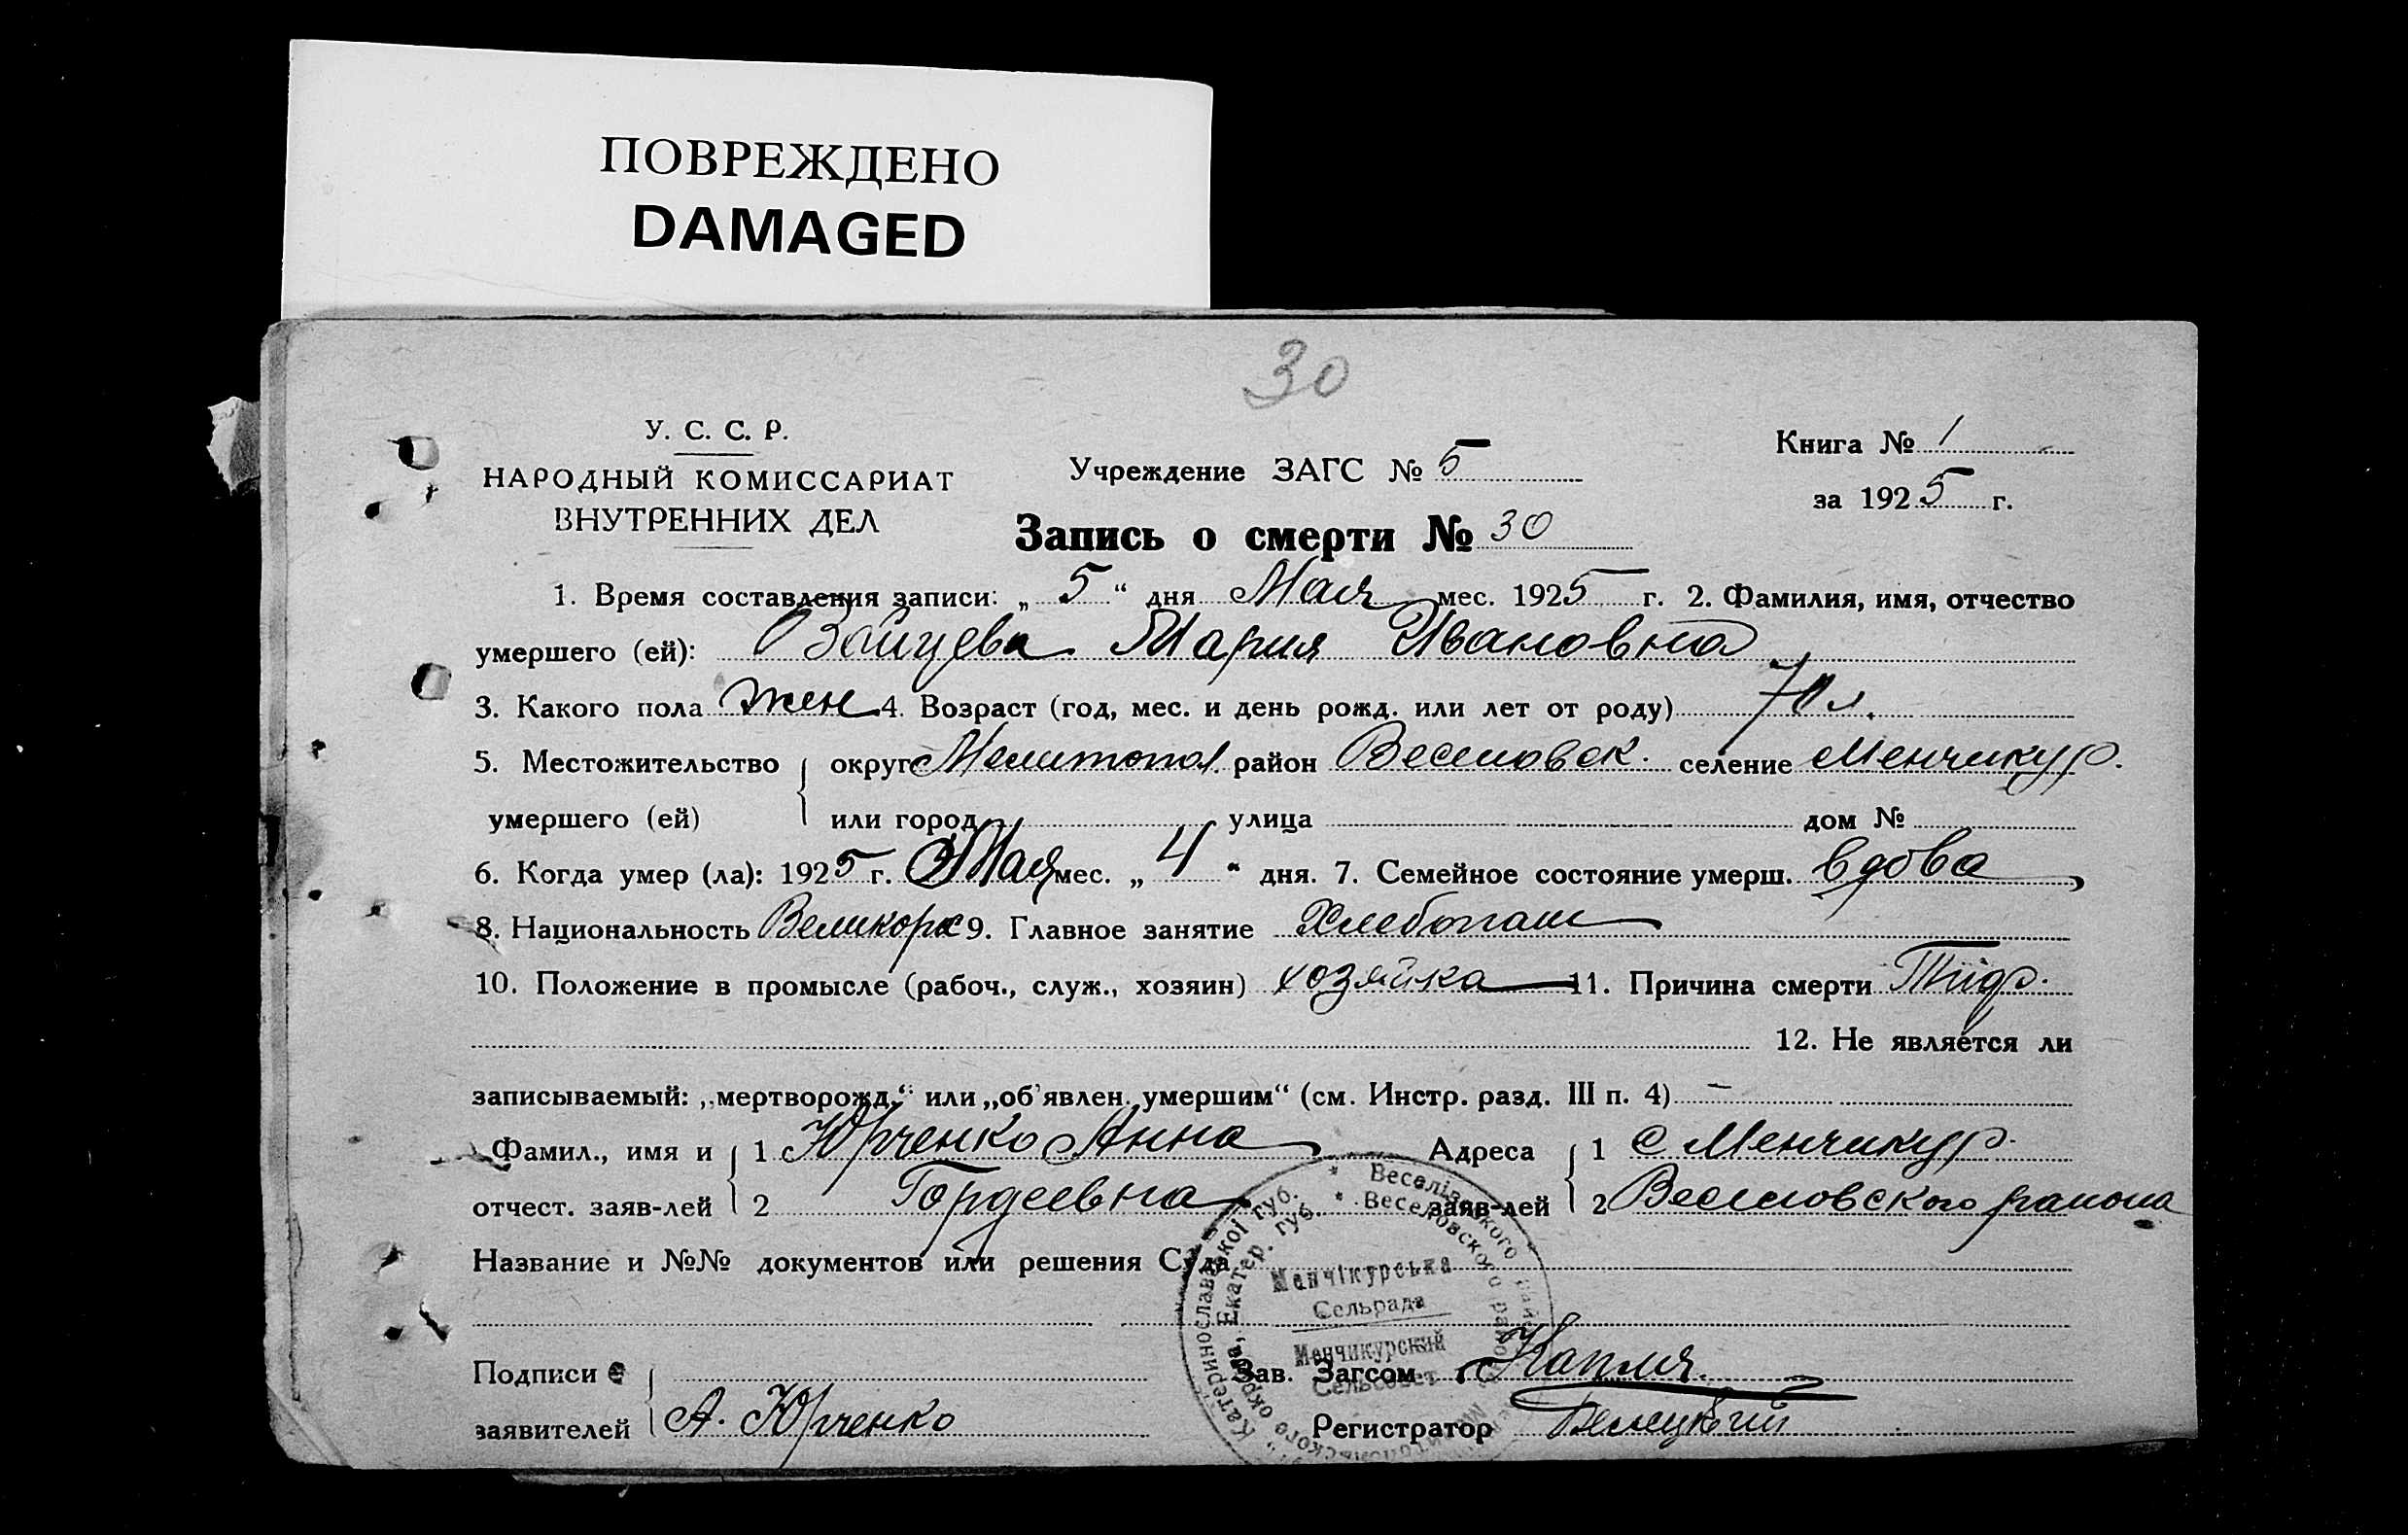 ПОВРЕЖДЕНО
DAMAGED
30
У. С. С. Р.
НАРОДНЫЙ КОМИССАРИАТ
ВНУТРЕННИХ ДЕЛ
Учреждение ЗАГС № 5
Книга № 1
за 1925 г.
Запись о смерти № 30
1. Время составления записи: „ 5 “ дня Мая мес. 1925 г. 2. Фамилия, имя, отчество
умершего (ей): Зайцева Мария Ивановна
3. Какого пола жен 4. Возраст (год, мес. и день рожд. или лет от роду) 70 л.
5. Местожительство округ Мелитопол. район Веселовск. селение Менчикур.
умершего (ей) или город улица дом №
6. Когда умер (ла): 1925 г. Мая мес. „ 4 “ дня. 7. Семейное состояние умерш. вдова
8. Национальность Великорс 9. Главное занятие Хлебопаш
10. Положение в промысле (рабоч., служ., хозяин) хозяйка 11. Причина смерти
12. Не является ли
записываемый: „мертворожд.“ или „об'явлен. умершим“ (см. Инстр. разд. III п. 4) —
Фамил., имя и 1 Юрченко Анна Адреса 1 с Менчикур.
отчест. заяв-лей 2 Гордеевна заяв-лей 2 Веселовского района
Название и №№ документов или решения Суда
Подписи Зав. Загсом Капля
заявителей А. Юрченко Регистратор Белецкий
* Веселівського
Катеринославської губ.
* Веселовского района
Екатер. губ.
Менчікурська
Сельрада
Менчикурский
Сельсовет